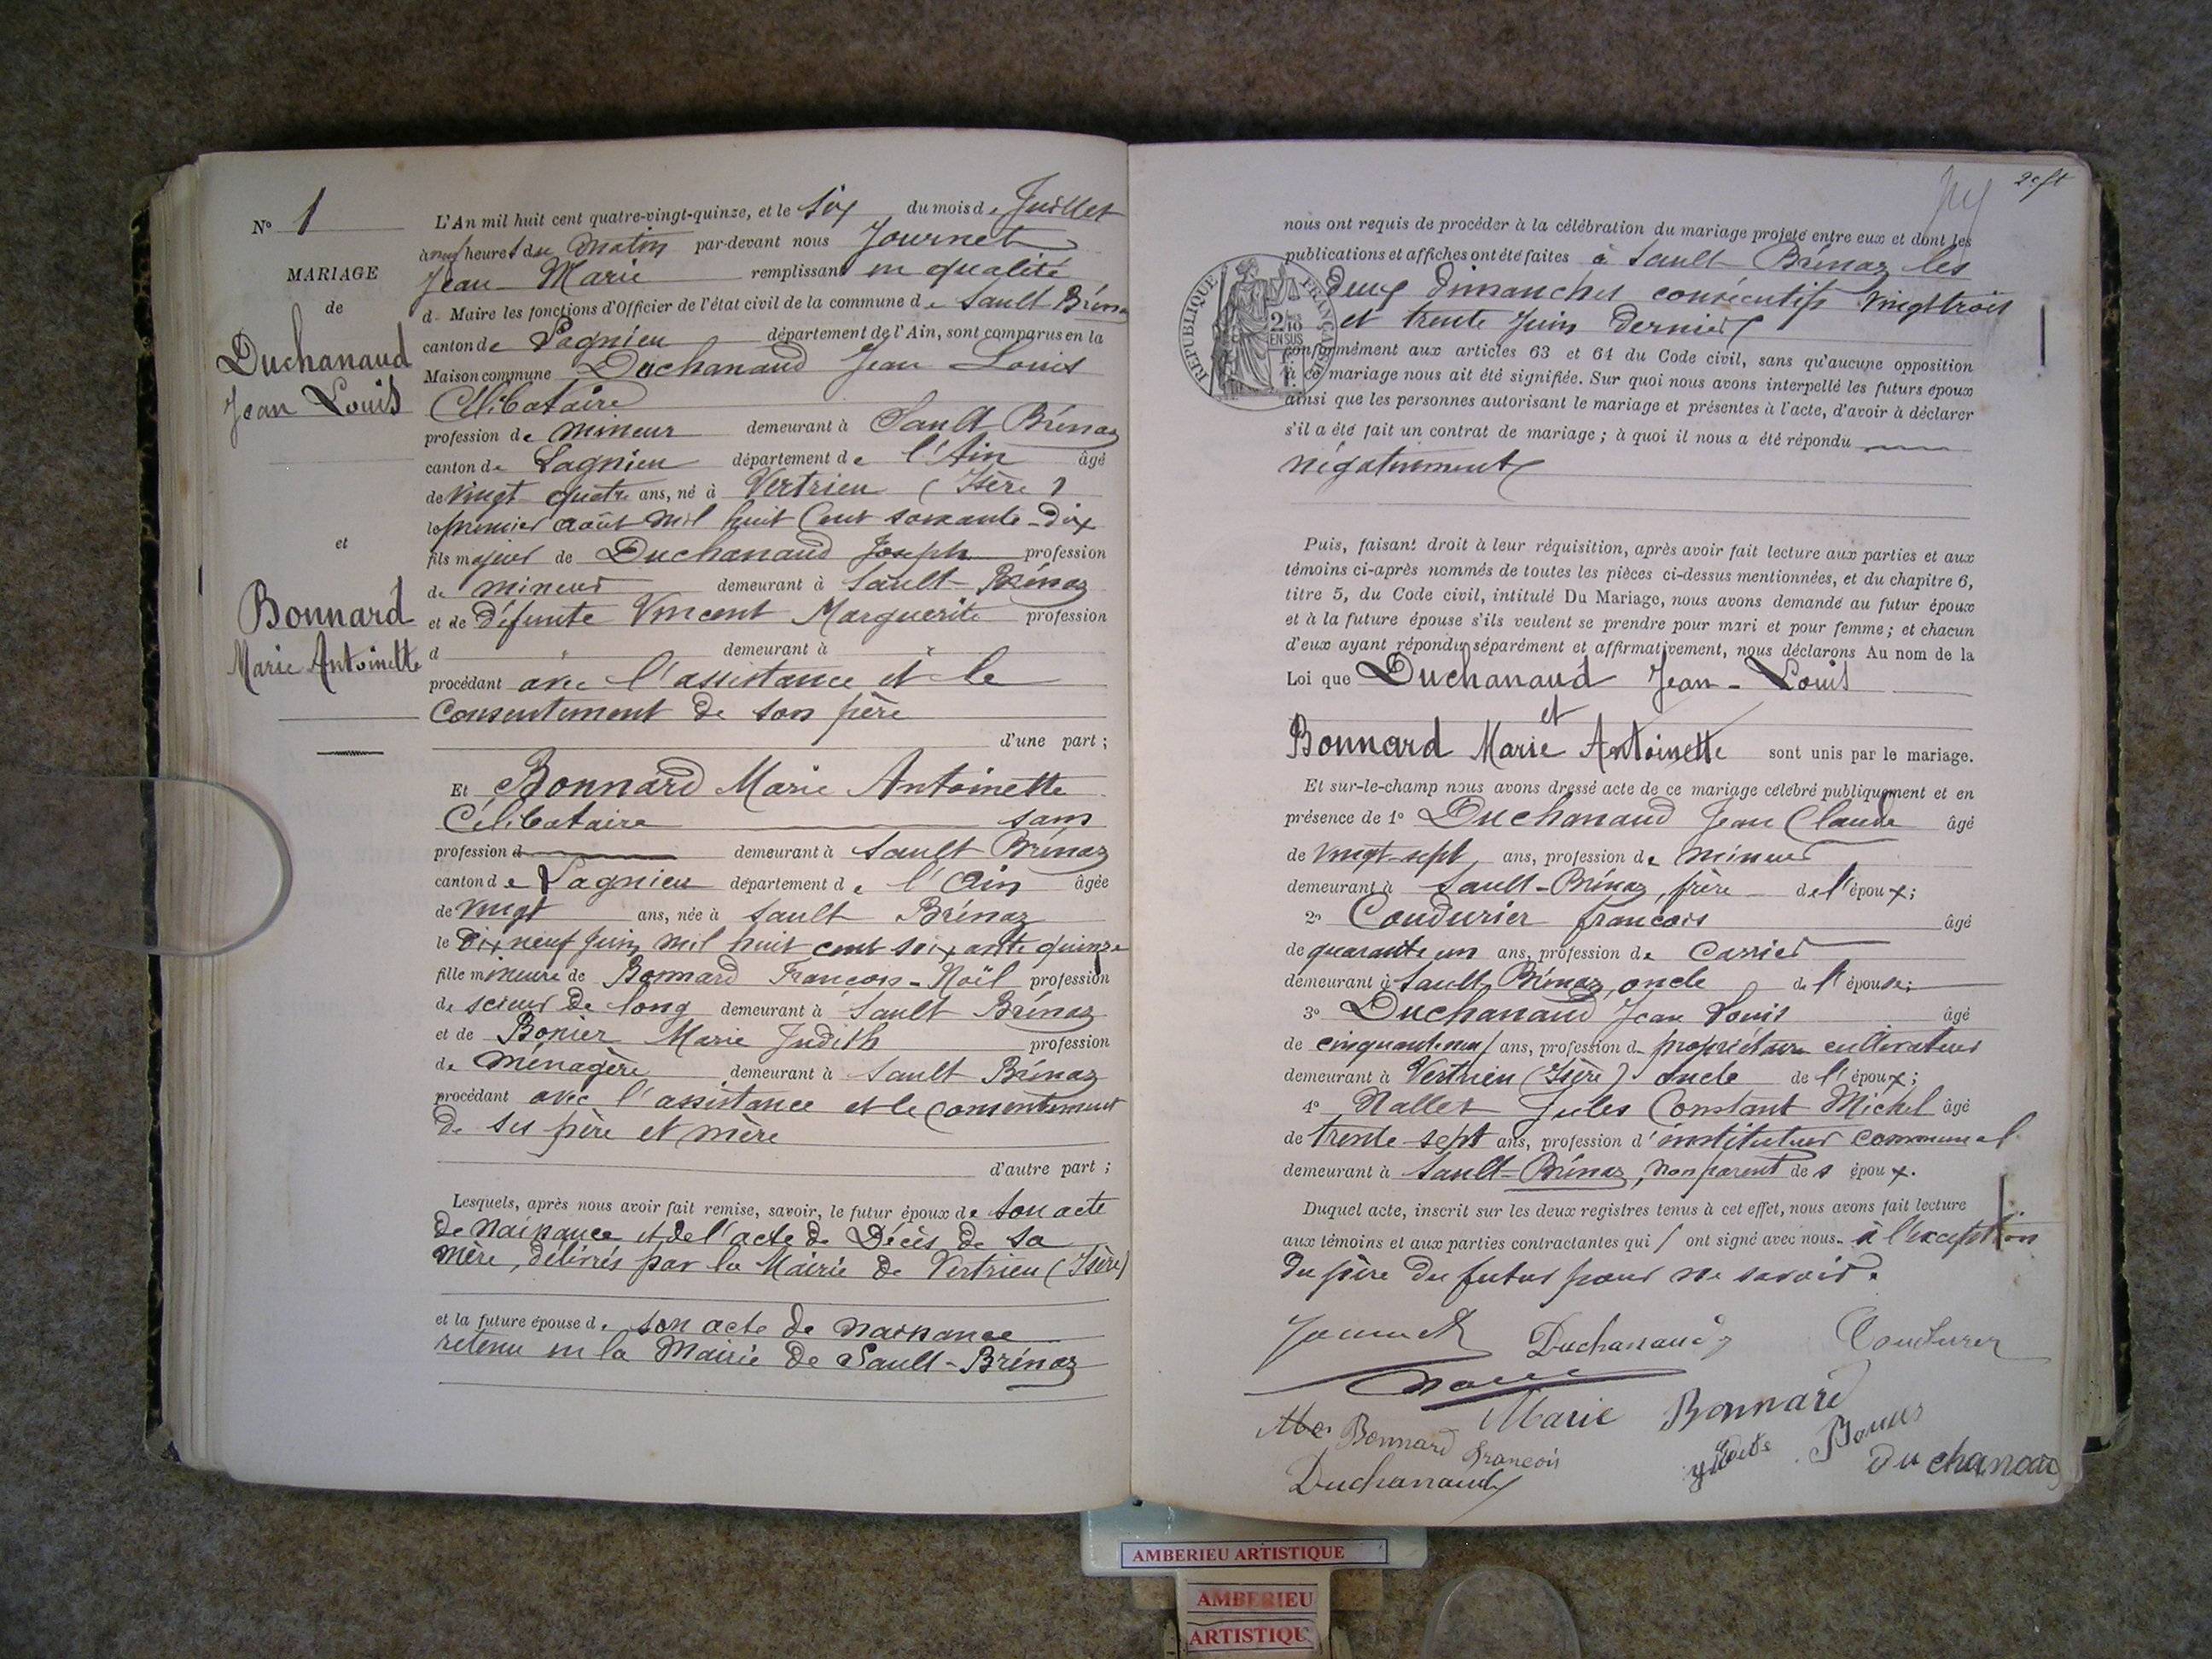 N° 1
MARIAGE
de
Duchanaud
Jean Louis
et
Bonnard
Marie Antoinette
L'An mil huit cent quatre-vingt-quinze, et le six du mois de Juillet
à neuf heures du matin par-devant nous Journet
Jean-Marie remplissant en qualité
d Maire les fonctions d'Officier de l'état civil de la commune de Sault Brénaz
canton de Lagnieu département de l'Ain, sont comparus en la
Maison commune Duchanaud Jean Louis
Célibataire
profession de mineur demeurant à Sault Brénaz
canton de Lagnieu département de l'Ain âgé
de vingt quatre ans, né à Vertrieu (Isère)
le premier août mil huit cent soixante-dix
fils majeur de Duchanaud Joseph profession
de mineur demeurant à Sault-Brénaz
et de défunte Vincent Marguerite profession
d " demeurant à "
procédant avec l'assistance et le
consentement de son père
d'une part ;
Et Bonnard Marie Antoinette
Célibataire sans
profession d demeurant à Sault Brénaz
canton de Lagnieu département de l'Ain âgée
de vingt ans, née à Sault Brénaz
le dix neuf Juin mil huit cent soixante quinze
fille mineure de Bonnard François-Noël profession
de scieur de long demeurant à Sault Brénaz
et de Bonier Marie Judith profession
de ménagère demeurant à Sault Brénaz
procédant avec l'assistance et le consentement
de ses père et mère
d'autre part ;
Lesquels, après nous avoir fait remise, savoir, le futur époux de son acte
de naissance et de l'acte de Décès de sa
mère, délivrés par la Mairie de Vertrieu (Isère)
et la future épouse d. son acte de naissance
retenu en la Mairie de Sault-Brénaz
nous ont requis de procéder à la célébration du mariage projeté entre eux et dont les
publications et affiches ont été faites à Sault Brénaz les
deux dimanches consécutifs vingt trois
et trente Juin dernier
RÉPUBLIQUE FRANÇAISE
2/10
EN SUS
conformément aux articles 63 et 64 du Code civil, sans qu'aucune opposition
à ce mariage nous ait été signifiée. Sur quoi nous avons interpellé les futurs époux
ainsi que les personnes autorisant le mariage et présentes à l'acte, d'avoir à déclarer
s'il a été fait un contrat de mariage ; à quoi il nous a été répondu
négativement
Puis, faisant droit à leur réquisition, après avoir fait lecture aux parties et aux
témoins ci-après nommés de toutes les pièces ci-dessus mentionnées, et du chapitre 6,
titre 5, du Code civil, intitulé Du Mariage, nous avons demandé au futur époux
et à la future épouse s'ils veulent se prendre pour mari et pour femme ; et chacun
d'eux ayant répondu séparément et affirmativement, nous déclarons Au nom de la
Loi que Duchanaud Jean-Louis
et
Bonnard Marie Antoinette sont unis par le mariage.
Et sur-le-champ nous avons dressé acte de ce mariage célébré publiquement et en
présence de 1° Duchanaud Jean Claude âgé
de vingt-sept ans, profession de mineur
demeurant à Sault-Brénaz, frère de l'époux ;
2° Coudurier françois âgé
de quarante un ans, profession de carrier
demeurant à Sault Brénaz, oncle de l'épouse ;
3° Duchanaud Jean Louis âgé
de cinquante neuf ans, profession d. propriétaire cultivateur
demeurant à Vertrieu (Isère) oncle de l'époux ;
4° Nallet Jules Constant Michel âgé
de trente sept ans, profession d'instituteur communal
demeurant à Sault-Brénaz, non parent des époux.
Duquel acte, inscrit sur les deux registres tenus à cet effet, nous avons fait lecture
aux témoins et aux parties contractantes qui ont signé avec nous.. à l'exception
du père du futur pour ne savoir.
Journet Duchanaud Coudurier
Marie Bonnard
Bonnard françois
Duchanaud
AMBERIEU ARTISTIQUE
AMBERIEU
ARTISTIQUE